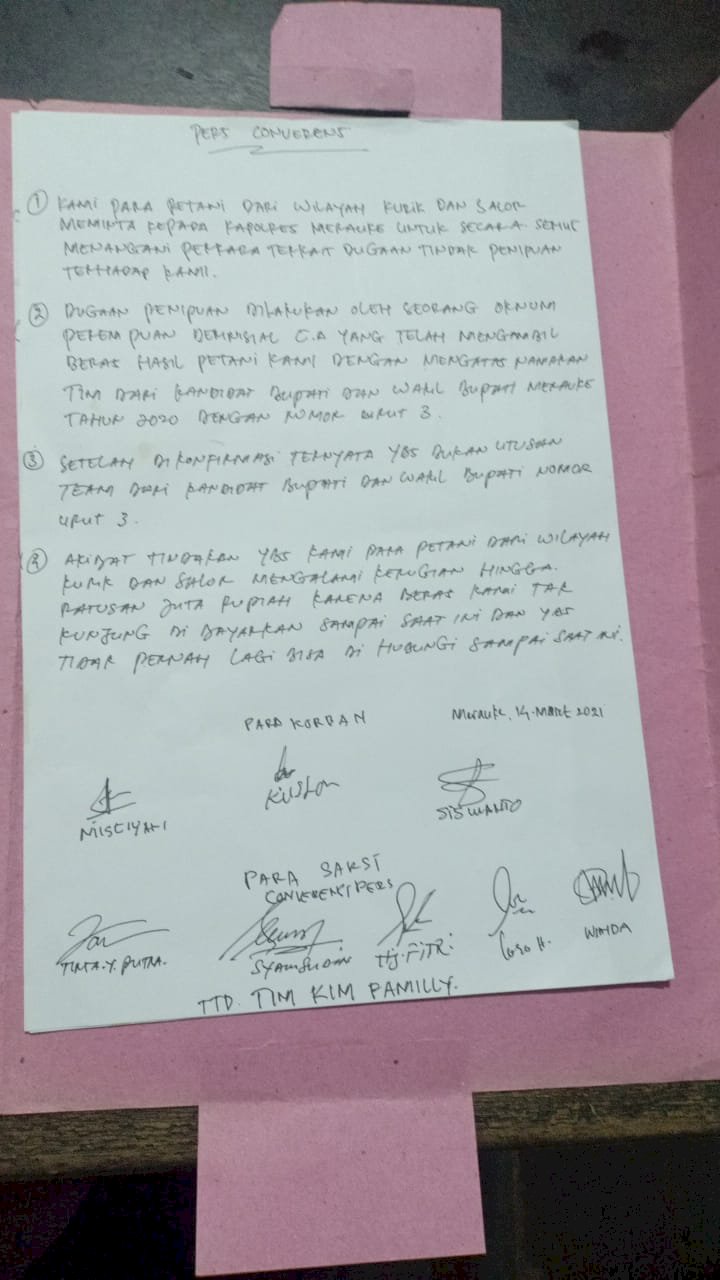 PERS CONVERENS
① KAMI PARA PETANI DARI WILAYAH KURIK DAN SALOR
MEMINTA KEPADA KAPOLRES MERAUKE UNTUK SECARA SERIUS
MENANGANI PERKARA TERKAIT DUGAAN TINDAK PENIPUAN
TERHADAP KAMI.
② DUGAAN PENIPUAN DILAKUKAN OLEH SEORANG OKNUM
PEREMPUAN BERINISIAL C.A YANG TELAH MENGAMBIL
BERAS HASIL PETANI KAMI DENGAN MENGATAS NAMAKAN
TIM DARI KANDIDAT BUPATI DAN WAKIL BUPATI MERAUKE
TAHUN 2020 DENGAN NOMOR URUT 3.
③ SETELAH DI KONFIRMASI TERNYATA YBS BUKAN UTUSAN
TEAM DARI KANDIDAT BUPATI DAN WAKIL BUPATI NOMOR
URUT 3.
④ AKIBAT TINDAKAN YBS KAMI PARA PETANI DARI WILAYAH
KURIK DAN SALOR MENGALAMI KERUGIAN HINGGA
RATUSAN JUTA RUPIAH KARENA BERAS KAMI TAK
KUNJUNG DI BAYARKAN SAMPAI SAAT INI DAN YBS
TIDAK PERNAH LAGI BISA DI HUBUNGI SAMPAI SAAT INI.
PARA KORBAN Merauke, 14 Maret 2021
SISWANTO
PARA SAKSI
CONVERENCI PERS
TIRTA.Y. PUTRA. SYAMSUDIN Hj. FITRI WINDA
TTD. TIM KIM PAMILLY.